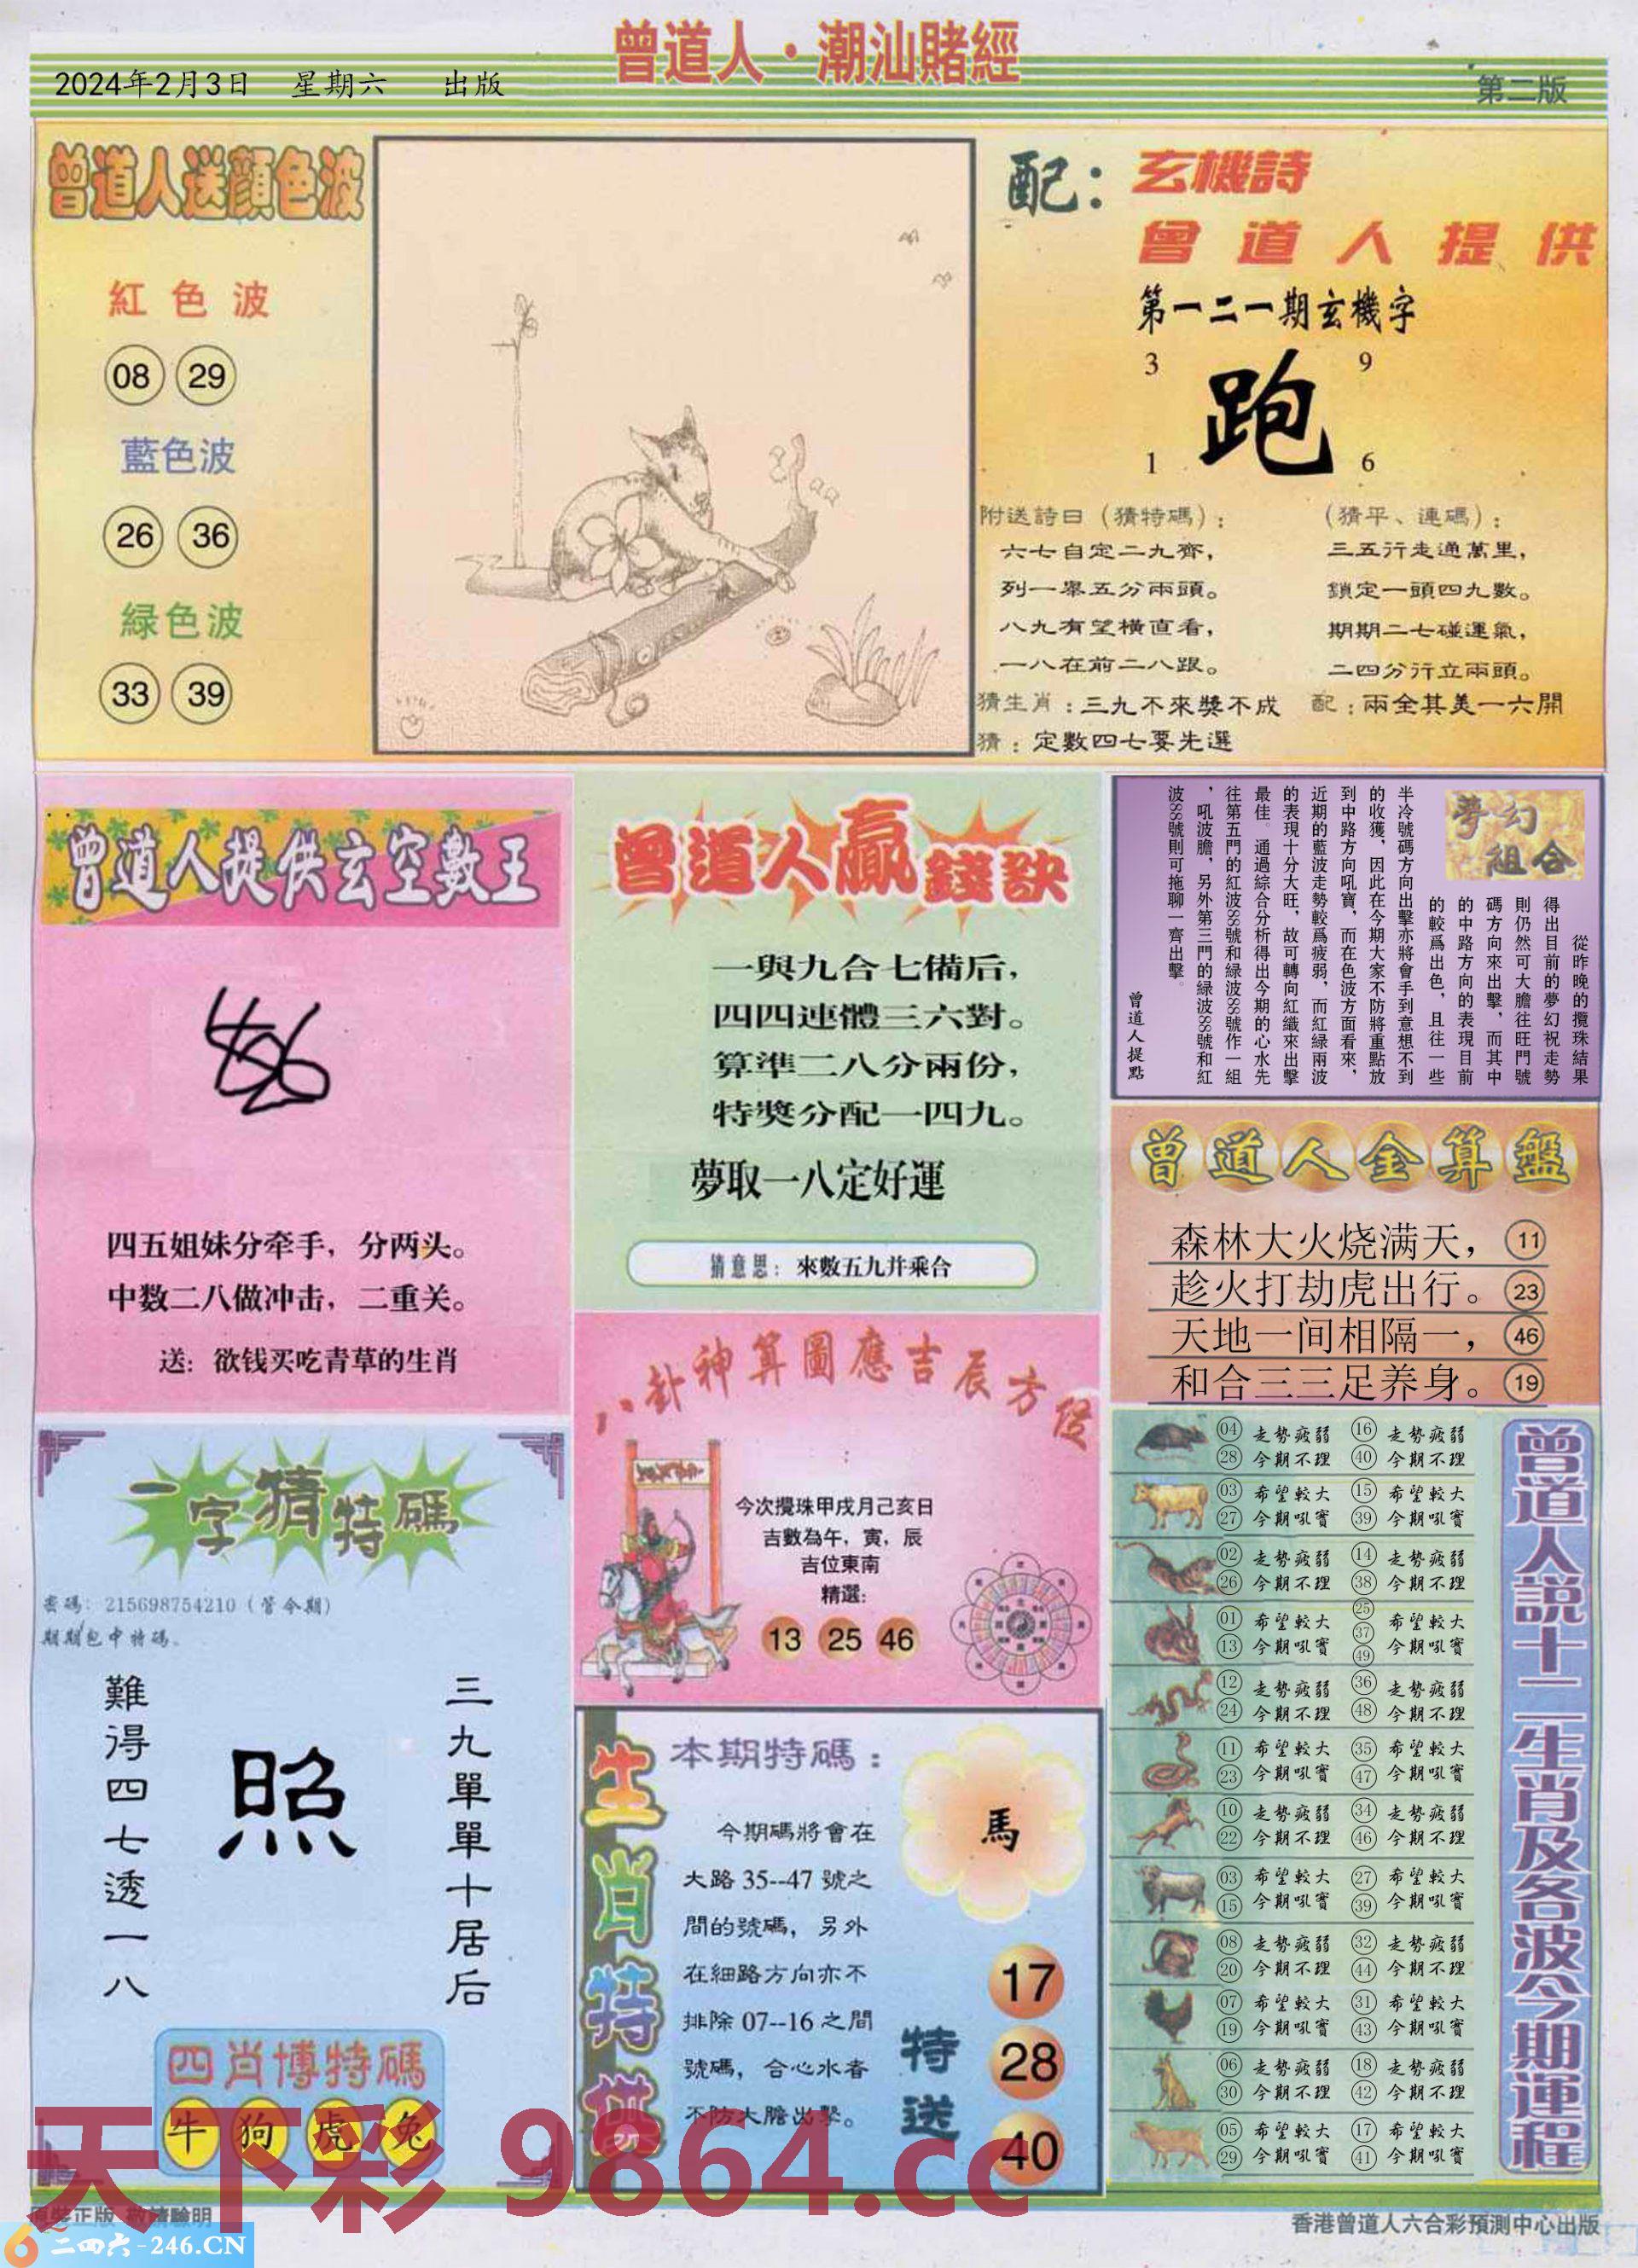 曾道人·潮汕賭經
2024年2月3日 星期六 出版
第二版
曾道人送顏色波
紅色波
08 29
藍色波
26 36
緑色波
33 39
配：玄機詩
曾道人提供
第一二一期玄機字
3 9
跑
1 6
附送詩曰（猜特碼）：
六七自定二九齊，
列一舉五分兩頭。
八九有望橫直看，
一八在前二八跟。
（猜平、連碼）：
三五行走通萬里，
鎖定一頭四九數。
期期二七碰運氣，
二四分行立兩頭。
猜生肖：三九不來獎不成 配：兩全其美一六開
猜：定數四七要先選
曾道人提供玄空數王
四五姐妹分牵手，分两头。
中数二八做冲击，二重关。
送：欲钱买吃青草的生肖
曾道人贏錢訣
一與九合七備后，
四四連體三六對。
算準二八分兩份，
特獎分配一四九。
夢取一八定好運
猜意思：來數五九并乘合
夢幻
組合
從昨晚的攬珠結果
得出目前的夢幻祝走勢
則仍然可大膽往旺門號
碼方向來出擊，而其中
的中路方向的表現目前
的較爲出色，且往一些
半冷號碼方向出擊亦將會手到意想不到
的收獲，因此在今期大家不防將重點放
到中路方向吼寶，而在色波方面看來，
近期的藍波走勢較爲疲弱，而紅緑兩波
的表現十分大旺，故可轉向紅織來出擊
最佳。通過綜合分析得出今期的心水先
往第五門的紅波88號和緑波88號作一組
，吼波膽，另外第三門的緑波88號和紅
波88號則可拖聊一齊出擊。
曾道人提點
曾道人金算盤
森林大火烧满天，11
趁火打劫虎出行。23
天地一间相隔一，46
和合三三足养身。19
八卦神算圖應吉辰方位
今次攪珠甲戌月己亥日
吉數為午，寅，辰
吉位東南
精選：
13 25 46
一字猜特碼
密碼：215698754210（管今期）
期期包中特碼。
三九單單十居后
照
難得四七透一八
四肖博特碼
牛 狗 虎 兔
生肖特供
本期特碼：
馬
今期碼將會在
大路35--47號之
間的號碼，另外
在細路方向亦不
排除07--16之間
號碼，合心水者
不防大膽出擊。
特送
17
28
40
曾道人說十二生肖及各波今期運程
04 走勢疲弱 16 走勢疲弱
28 今期不理 40 今期不理
03 希望較大 15 希望較大
27 今期吼寶 39 今期吼寶
02 走勢疲弱 14 走勢疲弱
26 今期不理 38 今期不理
01 希望較大 25 37 49 希望較大
13 今期吼寶 今期吼寶
12 走勢疲弱 36 走勢疲弱
24 今期不理 48 今期不理
11 希望較大 35 希望較大
23 今期吼寶 47 今期吼寶
10 走勢疲弱 34 走勢疲弱
22 今期不理 46 今期不理
03 希望較大 27 希望較大
15 今期吼寶 39 今期吼寶
08 走勢疲弱 32 走勢疲弱
20 今期不理 44 今期不理
07 希望較大 31 希望較大
19 今期吼寶 43 今期吼寶
06 走勢疲弱 18 走勢疲弱
30 今期不理 42 今期不理
05 希望較大 17 希望較大
29 今期吼寶 41 今期吼寶
天下彩 9864.cc
原裝正版 敬請驗明
二四六-246.CN
香港曾道人六合彩預測中心出版